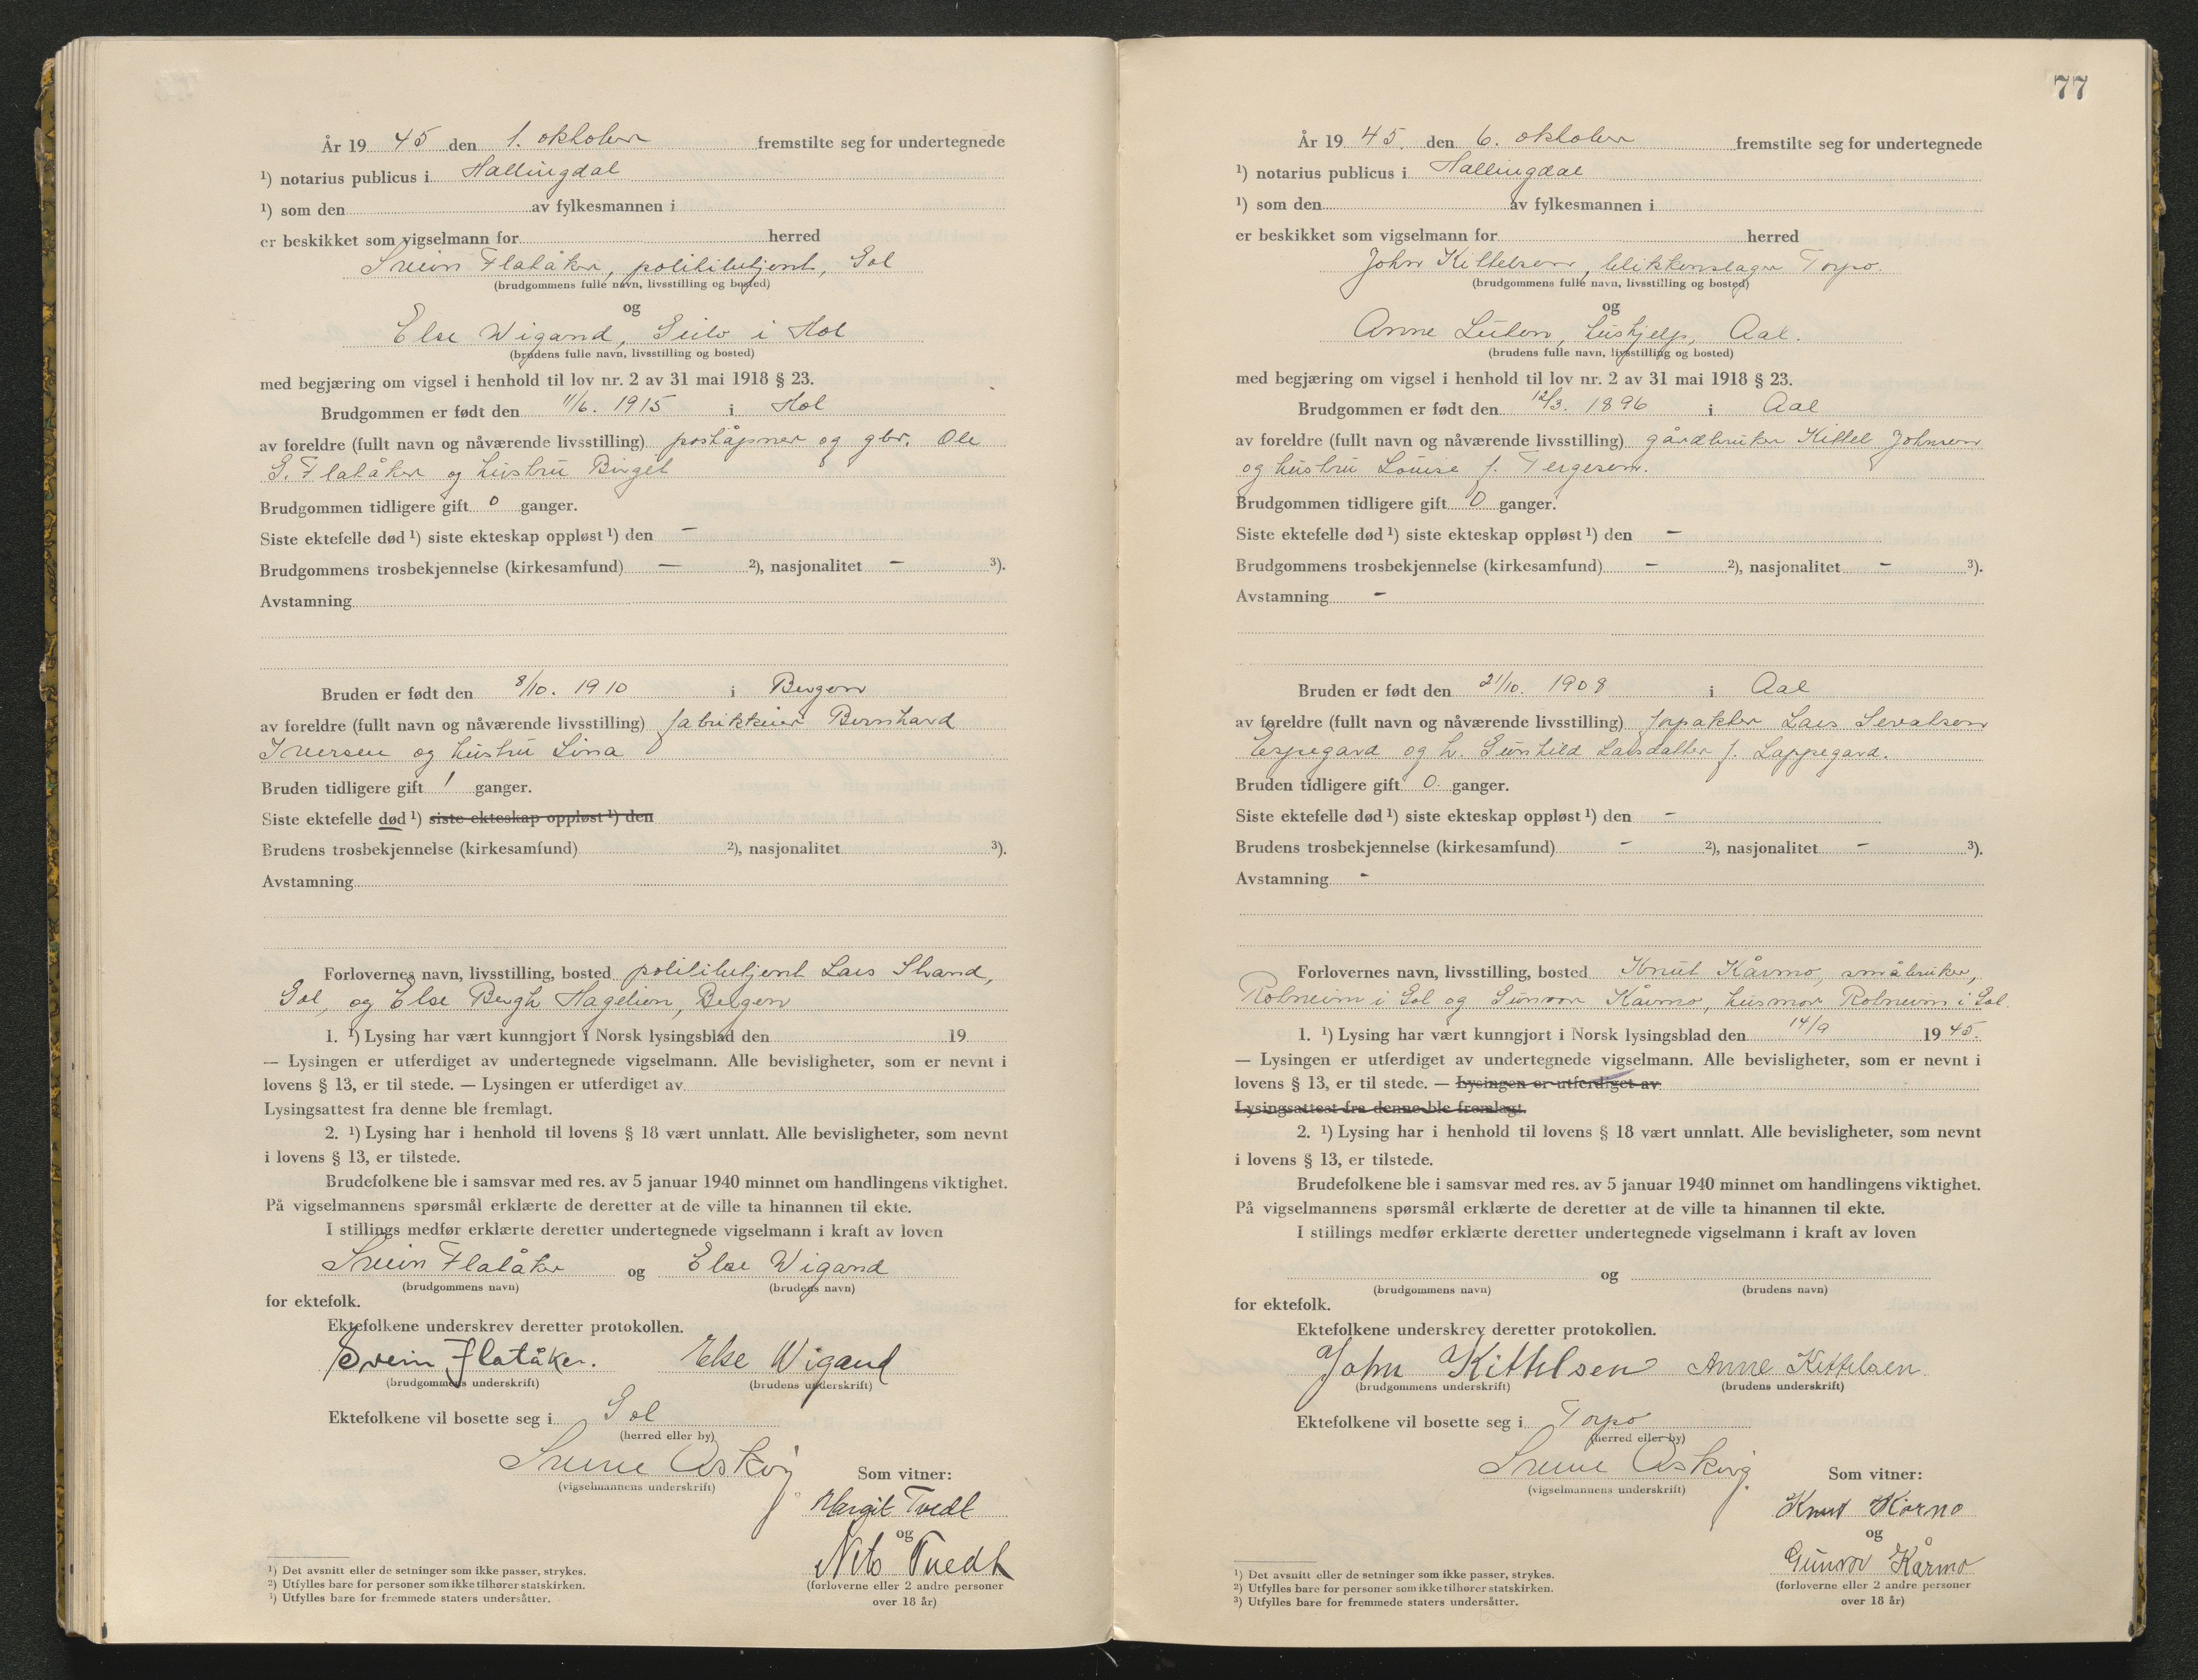 År 19 45 den 1. oktober fremstilte seg for undertegnede
¹) notarius publicus i Hallingdal
¹) som den av fylkesmannen i
er beskikket som vigselmann for herred
Svein Flatåker, politibetjent, Gol
(brudgommens fulle navn, livsstilling og bosted)
og
Else Wigand, Geilo i Hol
(brudens fulle navn, livsstilling og bosted)
med begjæring om vigsel i henhold til lov nr. 2 av 31 mai 1918 § 23.
Brudgommen er født den 11/6. 1915 i Hol
av foreldre (fullt navn og nåværende livsstilling) poståpner og gbr. Ole
G. Flatåker og hustru Birgit
Brudgommen tidligere gift 0 ganger.
Siste ektefelle død ¹) siste ekteskap oppløst ¹) den –
Brudgommens trosbekjennelse (kirkesamfund) – ²), nasjonalitet – ³).
Avstamning
Bruden er født den 8/10. 1910 i Bergen
av foreldre (fullt navn og nåværende livsstilling) fabrikkeier Bernhard
Iversen og hustru Lina
Bruden tidligere gift 1 ganger.
Siste ektefelle død ¹) siste ekteskap oppløst ¹) den
Brudens trosbekjennelse (kirkesamfund) ²), nasjonalitet ³).
Avstamning
Forlovernes navn, livsstilling, bosted politibetjent Lars Strand,
Gol, og Else Bergh Hagelien, Bergen
1. ¹) Lysing har vært kunngjort i Norsk lysingsblad den 19
— Lysingen er utferdiget av undertegnede vigselmann. Alle bevisligheter, som er nevnt i
lovens § 13, er til stede. — Lysingen er utferdiget av
Lysingsattest fra denne ble fremlagt.
2. ¹) Lysing har i henhold til lovens § 18 vært unnlatt. Alle bevisligheter, som nevnt
i lovens § 13, er tilstede.
Brudefolkene ble i samsvar med res. av 5 januar 1940 minnet om handlingens viktighet.
På vigselmannens spørsmål erklærte de deretter at de ville ta hinannen til ekte.
I stillings medfør erklærte deretter undertegnede vigselmann i kraft av loven
Svein Flatåker og Else Wigand
(brudgommens navn) (brudens navn)
for ektefolk.
Ektefolkene underskrev deretter protokollen.
Svein Flatåker. Else Wigand
(brudgommens underskrift) (brudens underskrift)
Ektefolkene vil bosette seg i Gol
(herred eller by)
Sverre Askvig
(vigselmannens underskrift)
Som vitner:
Margit Tvedt
og
Nils Tvedt
(forloverne eller 2 andre personer
over 18 år)
¹) Det avsnitt eller de setninger som ikke passer, strykes.
²) Utfylles bare for personer som ikke tilhører statskirken.
³) Utfylles bare for fremmede staters undersåtter.
77
År 19 45. den 6. oktober fremstilte seg for undertegnede
¹) notarius publicus i Hallingdal
¹) som den av fylkesmannen i
er beskikket som vigselmann for herred
John Kittelsen, blikkenslager Torpo.
(brudgommens fulle navn, livsstilling og bosted)
og
Anne Luten, hushjelp, Aal.
(brudens fulle navn, livsstilling og bosted)
med begjæring om vigsel i henhold til lov nr. 2 av 31 mai 1918 § 23.
Brudgommen er født den 12/3. 1896 i Aal
av foreldre (fullt navn og nåværende livsstilling) gårdbruker Kittel Johnsen
og hustru Louise f. Tergesen.
Brudgommen tidligere gift 0 ganger.
Siste ektefelle død ¹) siste ekteskap oppløst ¹) den –
Brudgommens trosbekjennelse (kirkesamfund) – ²), nasjonalitet – ³).
Avstamning –
Bruden er født den 21/10. 1908 i Aal
av foreldre (fullt navn og nåværende livsstilling) forpakter Lars Sevatsen
Espegard og h. Gunhild Larsdatter f. Lappegard.
Bruden tidligere gift 0. ganger.
Siste ektefelle død ¹) siste ekteskap oppløst ¹) den –
Brudens trosbekjennelse (kirkesamfund) – ²), nasjonalitet – ³).
Avstamning –
Forlovernes navn, livsstilling, bosted Knut Kårmo, småbruker,
Rotneim i Gol og Gunvor Kårmo, husmor Rotneim i Gol.
1. ¹) Lysing har vært kunngjort i Norsk lysingsblad den 14/9 19 45.
— Lysingen er utferdiget av undertegnede vigselmann. Alle bevisligheter, som er nevnt i
lovens § 13, er til stede. — Lysingen er utferdiget av
Lysingsattest fra denne ble fremlagt.
2. ¹) Lysing har i henhold til lovens § 18 vært unnlatt. Alle bevisligheter, som nevnt
i lovens § 13, er tilstede.
Brudefolkene ble i samsvar med res. av 5 januar 1940 minnet om handlingens viktighet.
På vigselmannens spørsmål erklærte de deretter at de ville ta hinannen til ekte.
I stillings medfør erklærte deretter undertegnede vigselmann i kraft av loven
og
(brudgommens navn) (brudens navn)
for ektefolk.
Ektefolkene underskrev deretter protokollen.
John Kittelsen Anne Kittelsen
(brudgommens underskrift) (brudens underskrift)
Ektefolkene vil bosette seg i Torpo
(herred eller by)
Sverre Askvig
(vigselmannens underskrift)
Som vitner:
Knut Kårmo
og
Gunvor Kårmo
(forloverne eller 2 andre personer
over 18 år)
¹) Det avsnitt eller de setninger som ikke passer, strykes.
²) Utfylles bare for personer som ikke tilhører statskirken.
³) Utfylles bare for fremmede staters undersåtter.